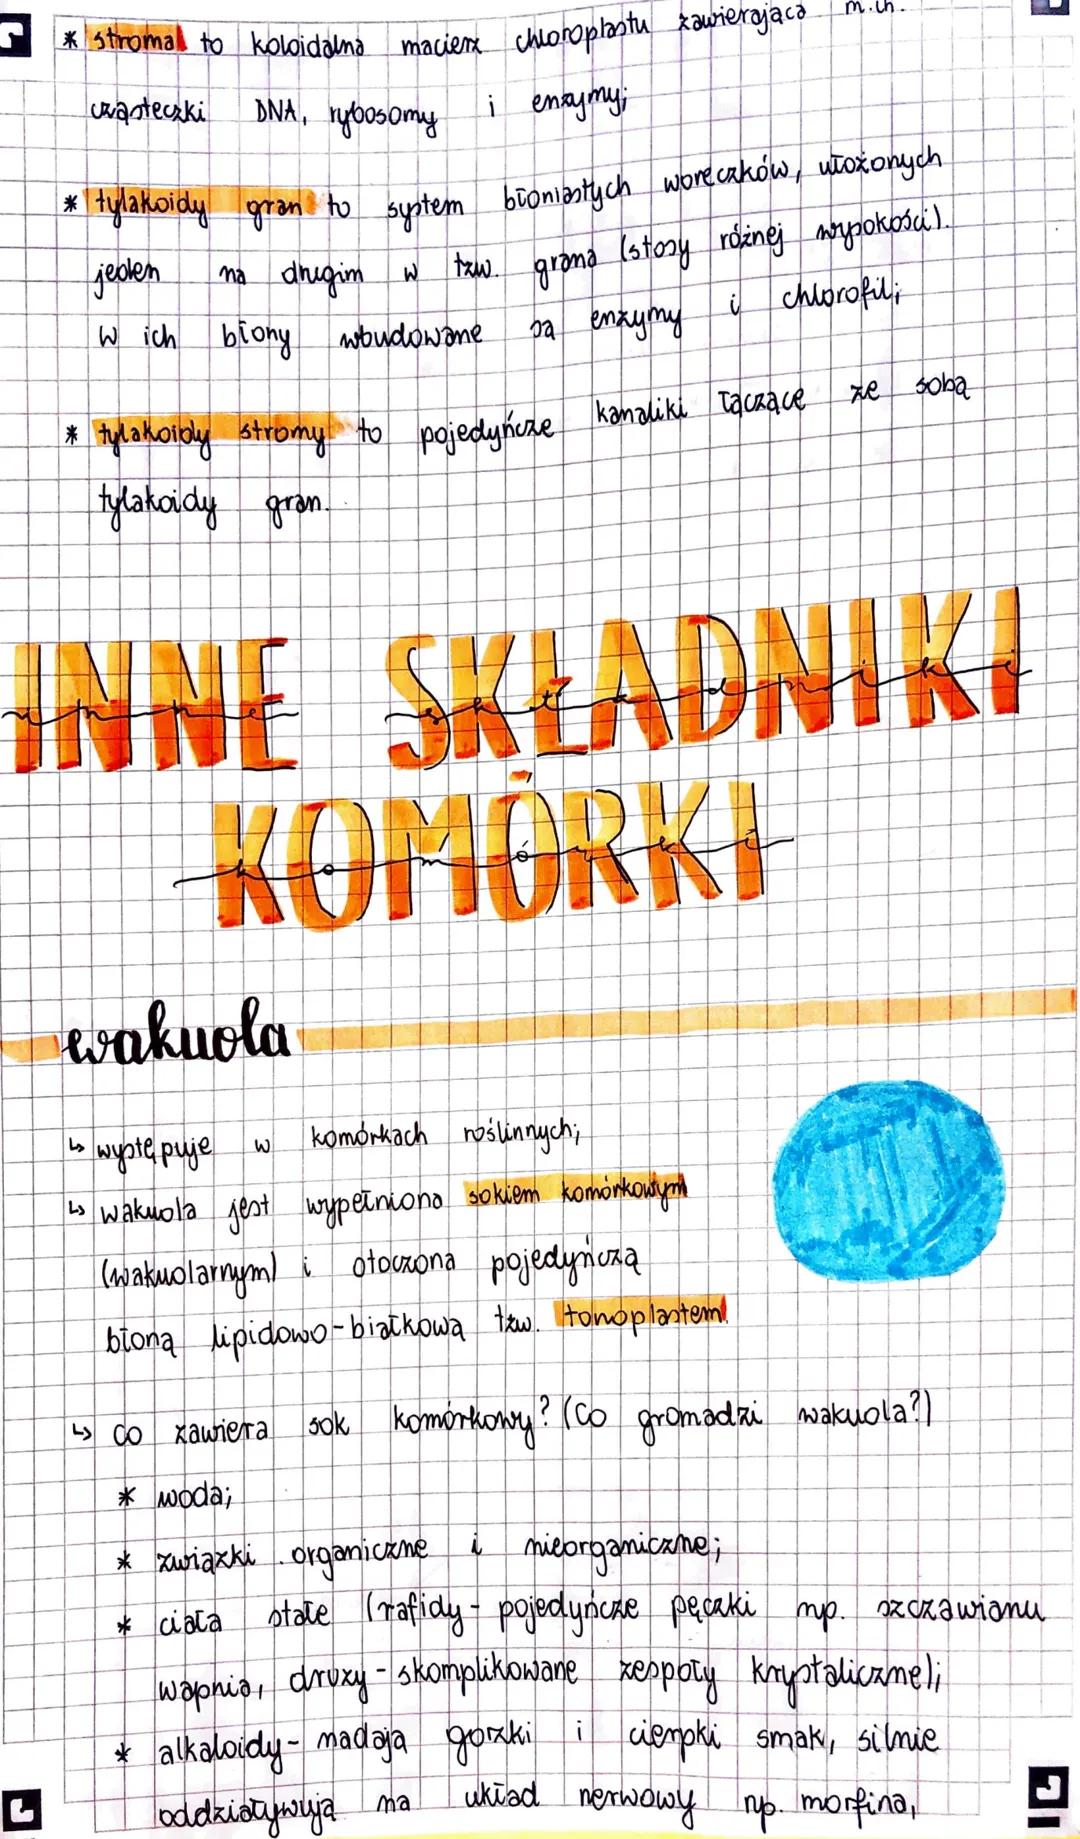 * stroma to koloidalna macierz chloroplastu zawierająca m.in.
cząsteczki DNA, rybosomy i enzymy;
* tylakoidy gran to system błoniastych woreczków, ułożonych
jeden na drugim w tzw. grana (stosy różnej wysokości).
W ich błony wbudowane są enzymy i chlorofil;
* tylakoidy stromy to pojedyńcze kanaliki łączące ze sobą
tylakoidy gran.
INNE SKŁADNIKI
inne składniki
KOMÓRKI
komórki
wakuola
↳ występuje w komórkach roślinnych;
↳ wakuola jest wypełniona sokiem komórkowym
(wakuolarnym) i otoczona pojedyńczą
błoną lipidowo-białkową tzw. tonoplastem.
↳ co zawiera sok komórkowy? (Co gromadzi wakuola?)
* woda;
* związki organiczne i nieorganiczne;
* ciała stałe (rafidy - pojedyńcze pęczki np. szczawianu
wapnia, druzy - skomplikowane zespoły krystaliczne);
* alkaloidy - nadają gorzki i cierpki smak, silnie
oddziaływują na układ nerwowy np. morfina,